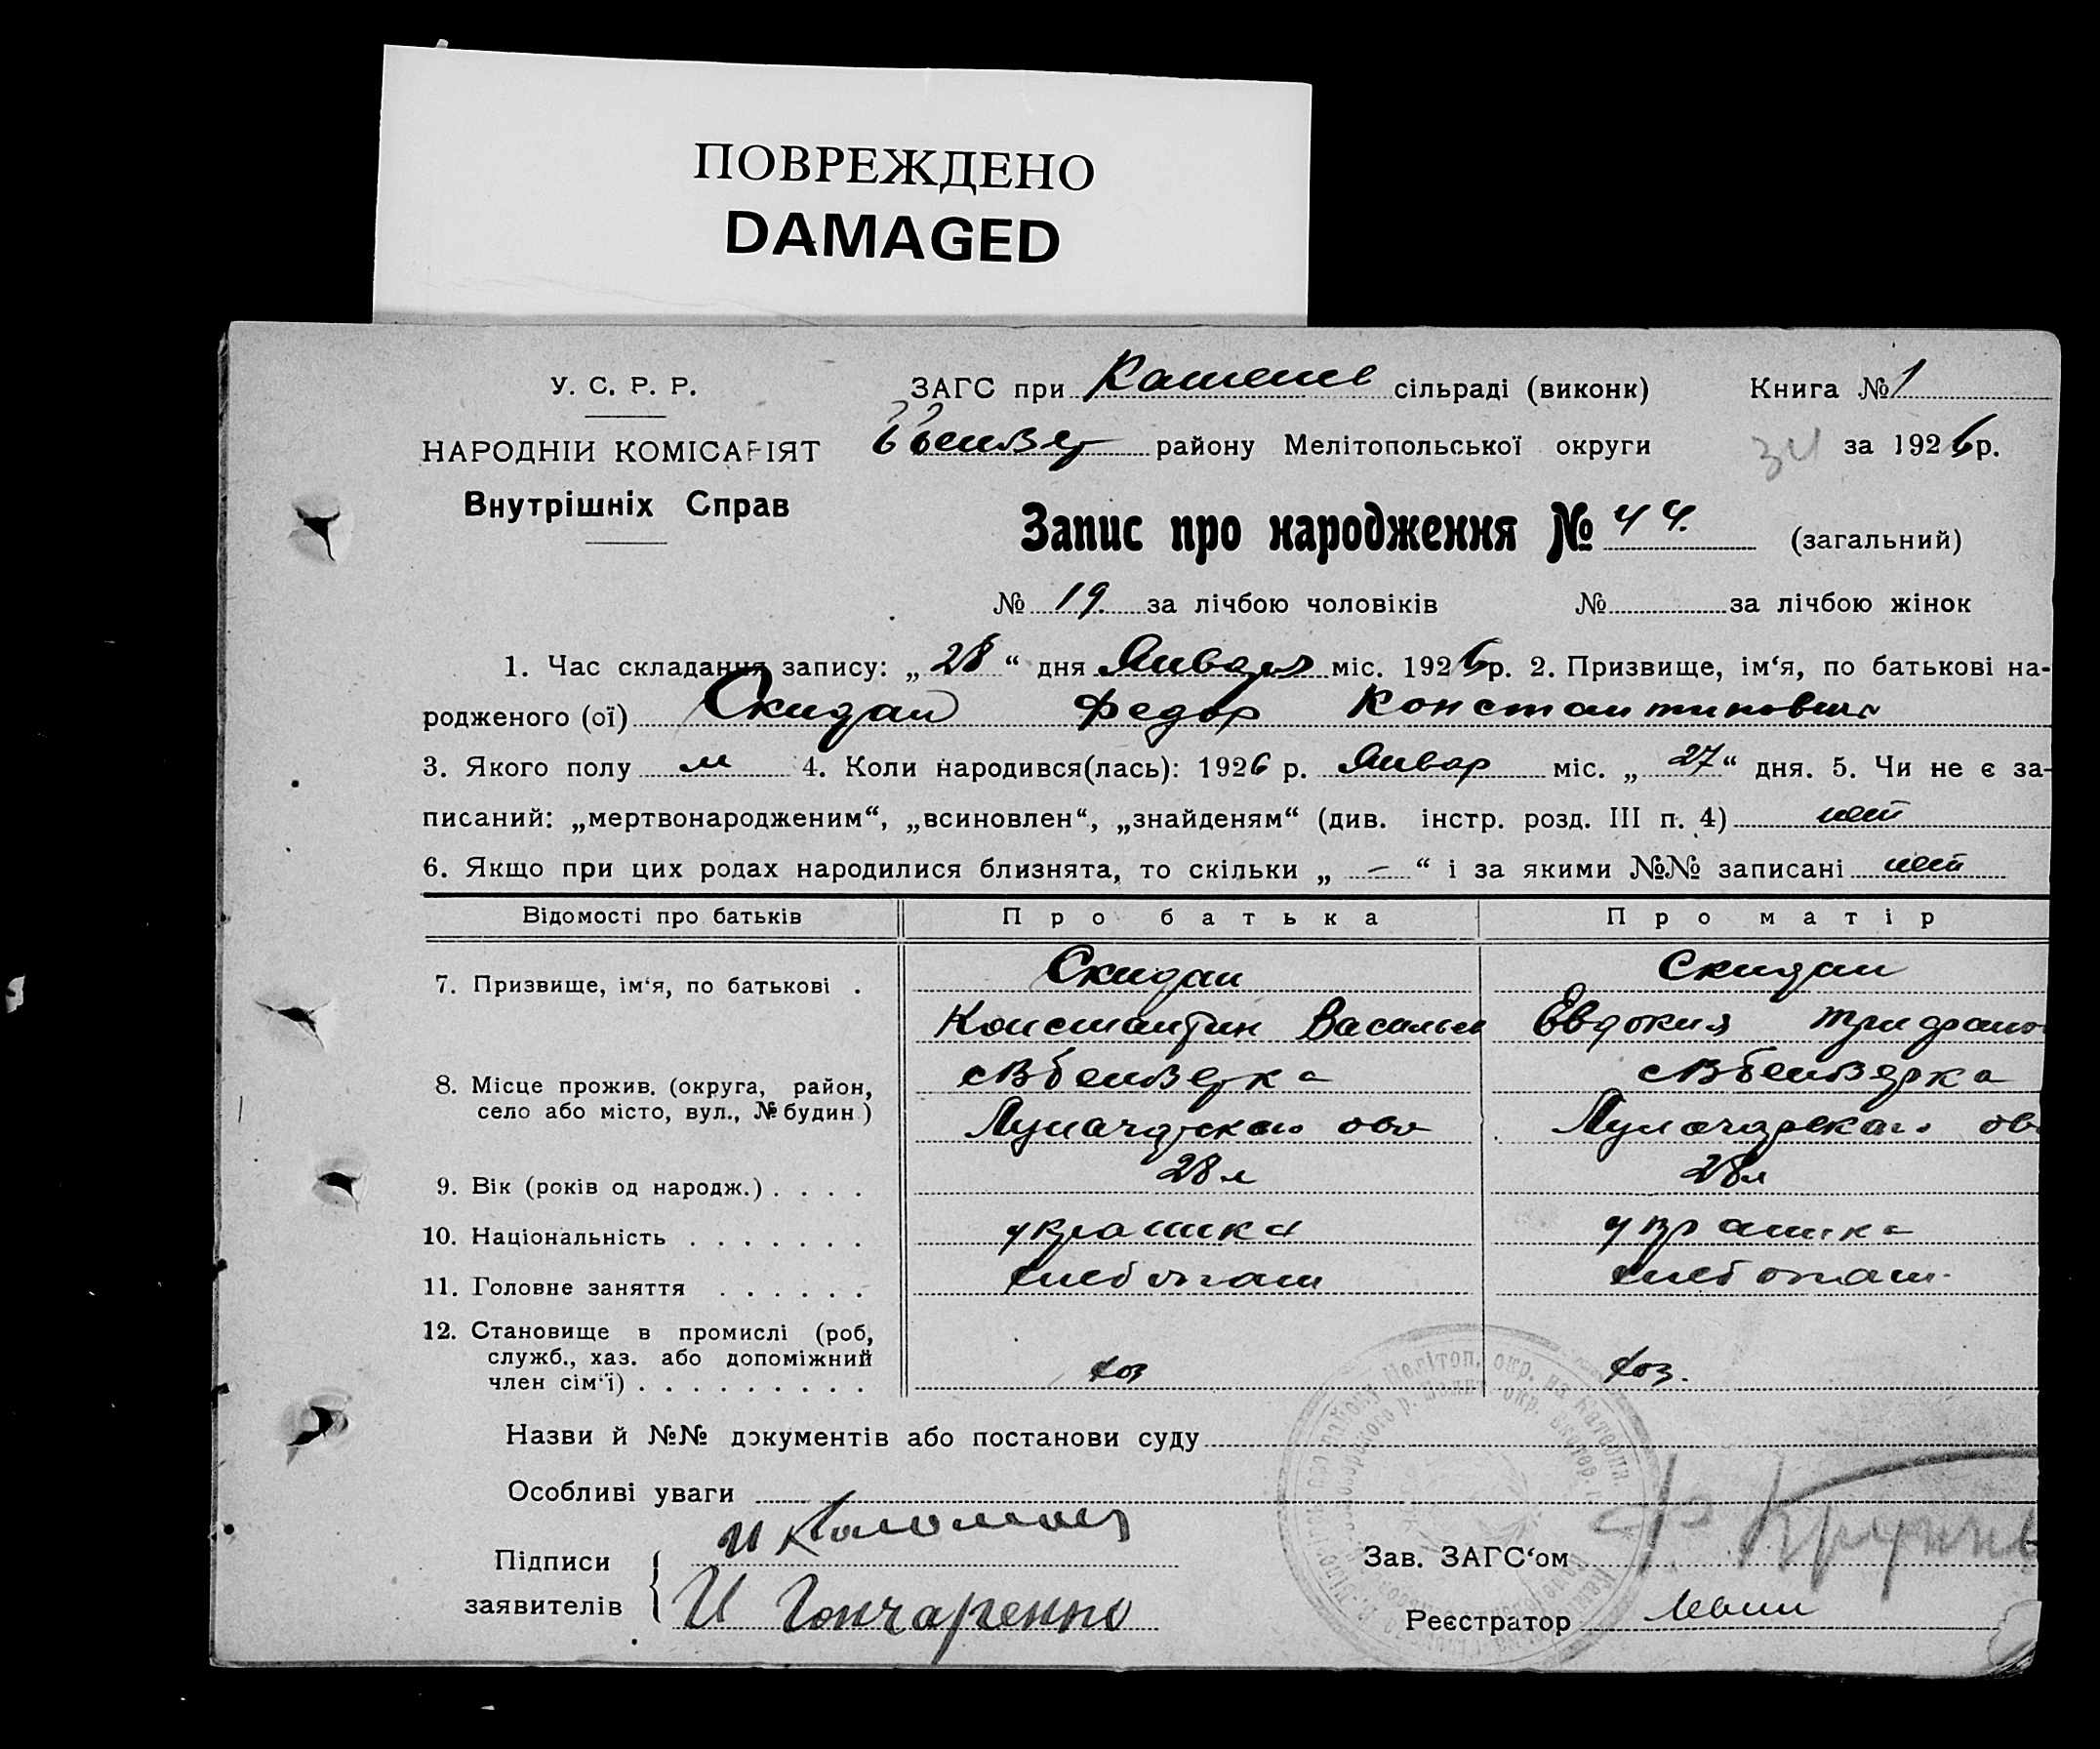 ПОВРЕЖДЕНО
DAMAGED
У. С. Р. Р.
ЗАГС при сільраді (виконк) Книга № 1
НАРОДНІЙ КОМІСАРІЯТ району Мелітопольської округи 34 за 1926 р.
Внутрішніх Справ
Запис про народження № 44. (загальний)
№ 19. за лічбою чоловіків № за лічбою жінок
1. Час складання запису: „28“ дня Января міс. 1926 р. 2. Призвище, ім‘я, по батькові на-
родженого (ої) Скидан Федор Константинович
3. Якого полу м 4. Коли народився(лась): 1926 р. Январ міс. „27“ дня. 5. Чи не є за-
писаний: „мертвонародженим“, „всиновлен“, „знайденям“ (див. інстр. розд. III п. 4) нет
6. Якщо при цих родах народилися близнята, то скільки „ – “ і за якими №№ записані нет
Відомості про батьків Про батька Про матір
7. Призвище, ім‘я, по батькові . Скидан Скидан
Константин Васильев Евдокия
8. Місце прожив. (округа, район,
село або місто, вул., № будин)
9. Вік (років од народж.) . . . . 28 л 28 л
10. Національність . . . . . . . украинка украинка
11. Головне заняття . . . . . . хлебопаш хлебопаш.
12. Становище в промислі (роб,
служб., хаз. або допоміжний
член сім‘ї) . . . . . . . . . хоз хоз.
Назви й №№ документів або постанови суду
Особливі уваги
Підписи
заявителів И Гончаренко
Зав. ЗАГС‘ом
Реєстратор